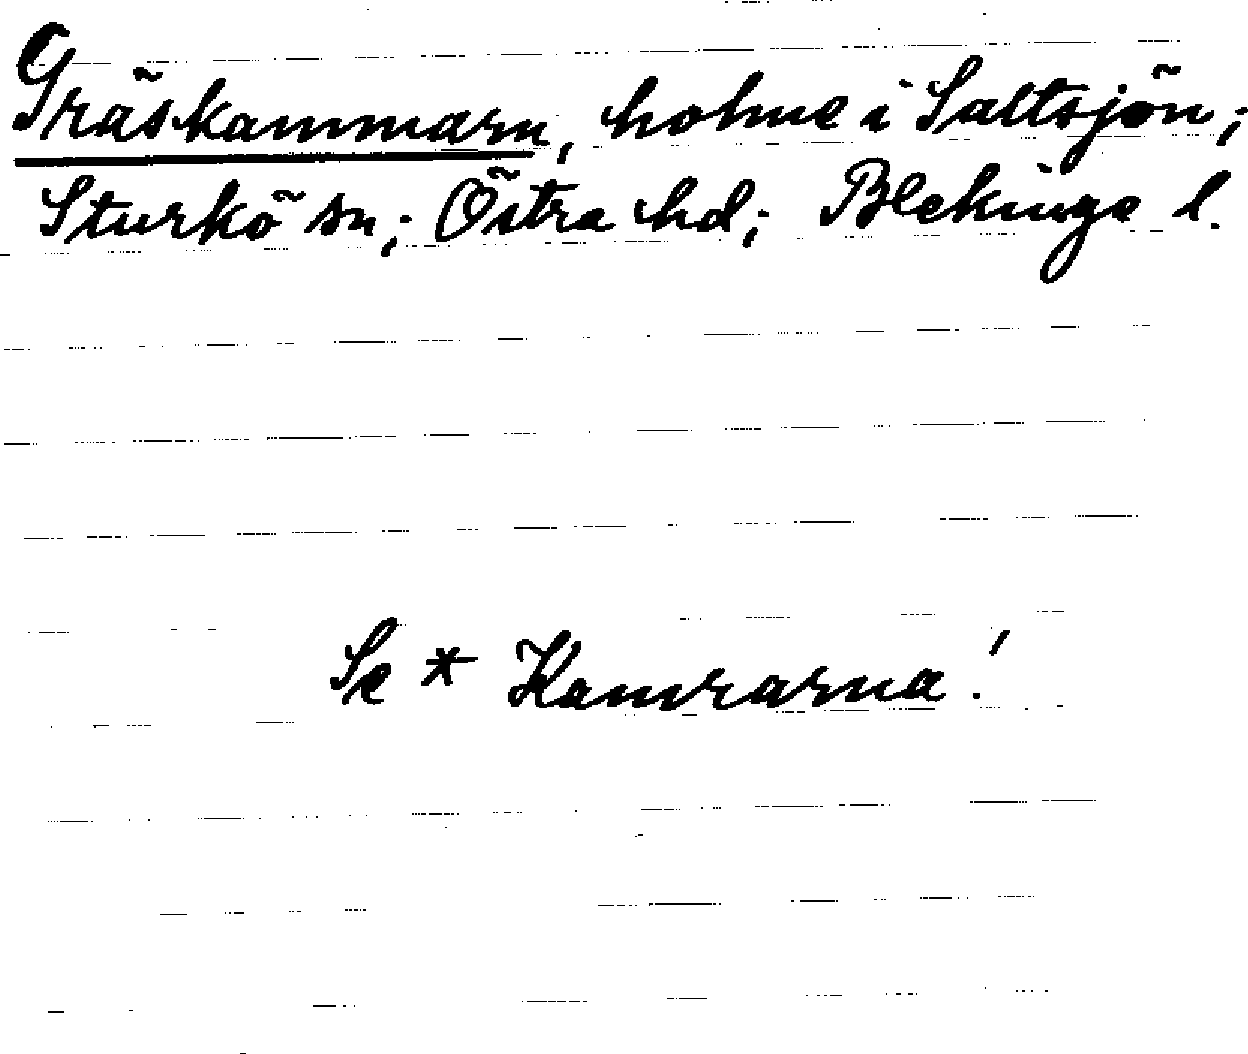 Gräskammarn, holme i Saltsjön;
Sturkö sn; Östra hd; Blekinge l.
Se * Kamrarna!